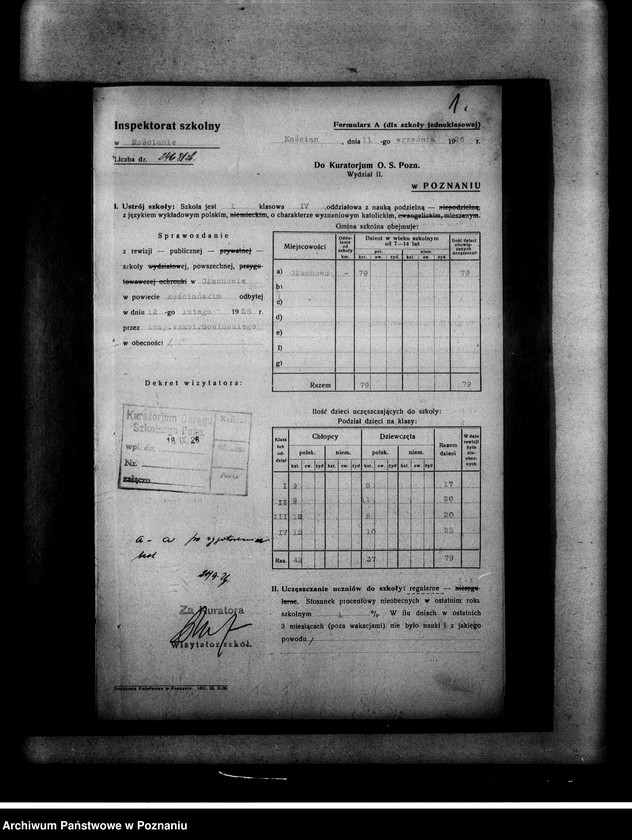 1.
Inspektorat szkolny
w Kościanie
Liczba dz.
Formularz A (dla szkoły jednoklasowej)
Kościan, dnia 11 -go września 1926 r.
Do Kuratorjum O. S. Pozn.
Wydział II.
w POZNANIU
I. Ustrój szkoły: Szkoła jest 1 klasowa IV oddziałowa z nauką podzielną — niepodzielną,
z językiem wykładowym polskim, niemieckim, o charakterze wyznaniowym katolickim, ewangelickim, mieszanym.
Sprawozdanie
z rewizji — publicznej — prywatnej —
szkoły wydziałowej, powszechnej, przygo-
towawczej ochronki w Głuchowie
w powiecie Kościańskim odbytej
w dniu 12 -go lutego 1926 r.
przez insp.szkol.
w obecności /
Dekret wizytatora:
Gmina szkolna obejmuje:
Miejscowości
Oddalenie od szkoły km.
Dzieci w wieku szkolnym od 7—14 lat
pol. niem.
kat. ew. żyd. kat. ew. żyd.
Ilość dzieci obowiązanych uczęszczać
a) Głuchowo - 79 79
b)
c)
d)
e)
f)
g)
Razem 79 79
Kuratorjum Okręgu
Szkolnego Pozn.
18 IX. 26
wpł. dn.
Nr.
załącz.
Ilość dzieci uczęszczających do szkoły:
Podział dzieci na klasy:
Klasa lub oddział
Chłopcy Dziewczęta
polsk. niem. polsk. niem.
kat. ew. żyd kat. ew. żyd kat. ew. żyd kat. ew. żyd
Razem dzieci
W dniu rewizji było nieobecnych
I 9 8 17
II 9 11 20
III 12 8 20
IV 12 10 22
Raz. 42 37 79
Za Kuratora
Wizytator szkół.
II. Uczęszczanie uczniów do szkoły: regularne — nieregu-
larne. Stosunek procentowy nieobecnych w ostatnim roku
szkolnym 1 %. W ilu dniach w ostatnich
3 miesiącach (poza wakacjami) nie było nauki i z jakiego
powodu /
Drukarnia Państwowa w Poznaniu.
Archiwum Państwowe w Poznaniu